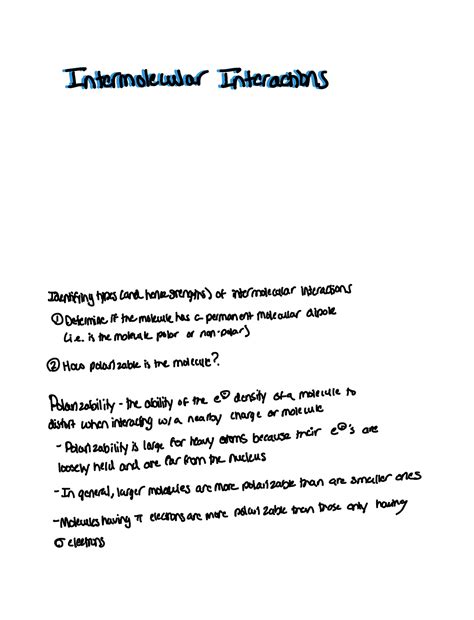 Intermolecular Interactions
Identifying types (and hence strengths) of intermolecular interactions
① Determine if the molecule has a permanent molecular dipole
(i.e. is the molecule polar or non-polar)
② How polarizable is the molecule?
Polarizability - the ability of the e⊖ density of a molecule to
distort when interacting w/a nearby charge or molecule
- Polarizability is large for heavy atoms because their e⊖'s are
loosely held and are far from the nucleus
- In general, larger molecules are more polarizable than are smaller ones
- Molecules having π electrons are more polarizable than those only having
σ electrons